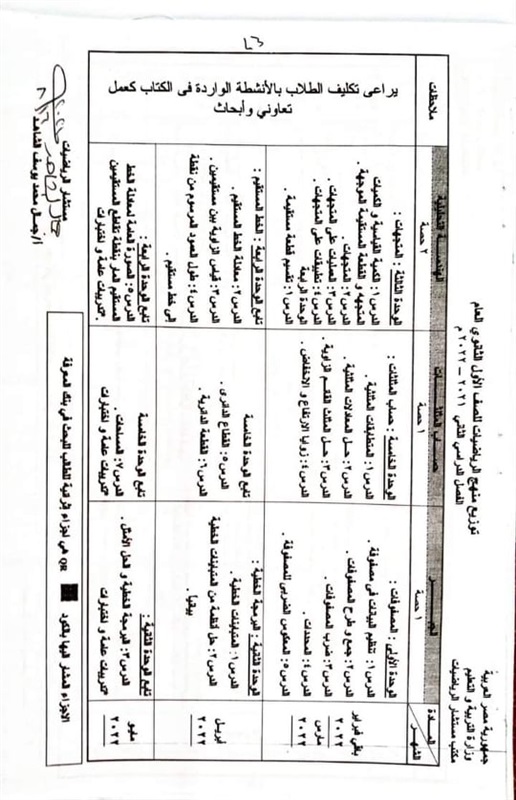 جمهورية مصر العربية
وزارة التربية و التعليم
مكتب مستشار الرياضيات
توزيع منهج الرياضيات للصف الأول الثانوي العام
الفصل الدراسي الثاني ٢٠٢١ – ٢٠٢٢ م
المـــادة
الشهــر
الجبـــــــر
١ حصة
حساب المثلثـــــات
١ حصة
الهندســـة التحليلية
٢ حصة
ملاحظات
باقي فبراير
٢٠٢٢
مارس
٢٠٢٢
الوحدة الأولى : المصفوفات :
الدرس ١: تنظيم البيانات فى مصفوفة .
الدرس ٢: جمع و طرح المصفوفات .
الدرس ٣: ضرب المصفوفات .
الدرس ٤: المحددات .
الدرس ٥: المعكوس الضربى للمصفوفة .
الوحدة الخامسة : حساب المثلثات :
الدرس ١: المتطابقات المثلثية .
الدرس ٢: حـــل المعادلات المثلثية .
الدرس ٣: حـــل المثلث القائـــم الزاوية .
الدرس ٤: زوايا الارتفاع و الانخفاض .
الوحدة الثالثة : المتجهات :
الدرس ١: الكمية القياسية و الكميات
المتجهه و القطعة المستقيمة الموجهة .
الدرس ٢: المتجهات .
الدرس ٣: العمليات على المتجهات .
الدرس ٤: تطبيقات على المتجهات .
الوحدة الرابعة
الدرس ١: تقسيم قطعة مستقيمة .
يراعى تكليف الطلاب بالأنشطة الواردة فى الكتاب كعمل
تعاوني وأبحاث
أبريل
٢٠٢٢
الوحدة الثانية : البرمجة الخطية :
الدرس ١: المتباينات الخطية .
الدرس ٢: حل أنظمة من المتباينات الخطية
بيانيا
تابع الوحدة الخامسة
الدرس ٥: القطاع الدائرى .
الدرس ٦: القطعة الدائرية .
تابع الوحدة الرابعة : الخط المستقيم :
الدرس ٢: معادلة الخط المستقيم .
الدرس ٣: قياس الزاوية بين مستقيمين .
الدرس ٤: طول العمود المرسوم من نقطة
إلى خط مستقيم .
مايو
٢٠٢٢
تابع الوحدة الثانية :
الدرس ٣: البرمجة الخطية و الحل الأمثل .
تدريبات عامة و اختبارات
تابع الوحدة الخامسة
الدرس ٧: المساحات .
تدريبات عامة و اختبارات
تابع الوحدة الرابعة :
الدرس ٥: الصورة العامة لمعادلة الخط
المستقيم المار بنقطة تقاطع المستقيمين
تدريبات عامة و اختبارات
الاجزاء المشار اليها بالكود QR هي اجزاء إثرائية للطالب للبحث في بنك المعرفة
مستشار الرياضيات
أ/جمال محمد يوسف الشاهد